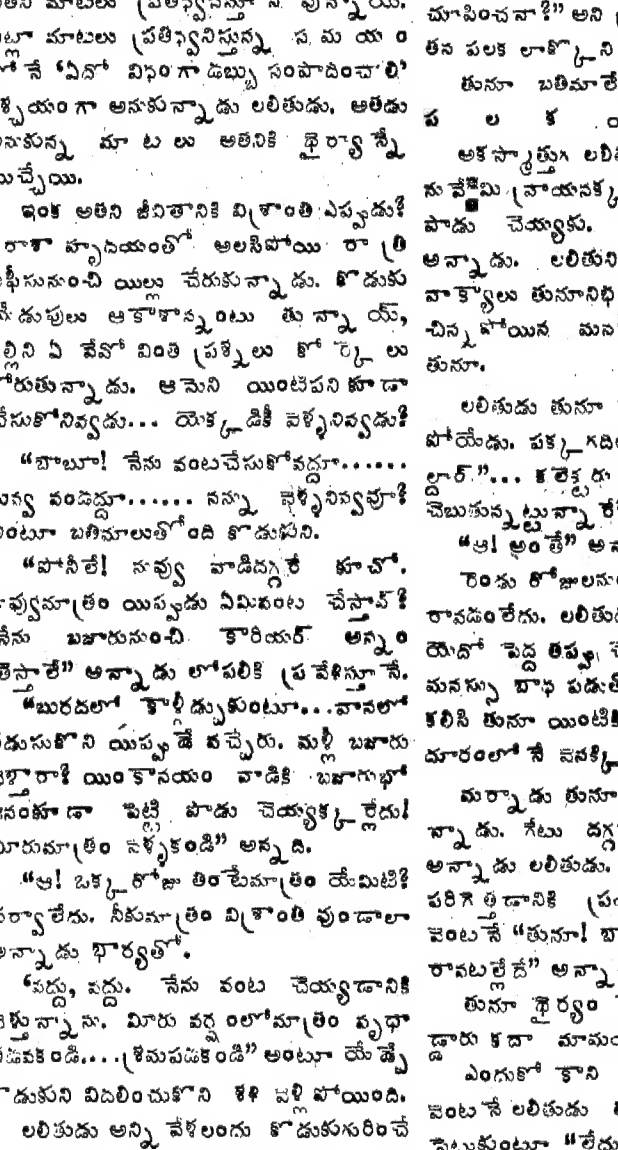 ట్లా మాటలు ప్రతిధ్వనిస్తున్న స మ యం
నే ‘ఏదో విధంగా డబ్బు సంపాదించాలి’
శ్చయంగా అనుకున్నాడు లలితుడు. అతడు
నుకున్న మా ట లు అతనికి ధైర్యాన్నే
యిచ్చేయి.
ఇంక అతని జీవితానికి విశ్రాంతి ఎప్పుడు?
రాశా హృదయంతో అలసిపోయి రా త్రి
ఫీసునుంచి యిల్లు చేరుకున్నాడు. కొడుకు
డుపులు ఆకాశాన్నంటు తు న్నా య్,
ల్లిని ఏ వేవో వింత ప్రశ్నలు కో ర్కె లు
కోరుతున్నాడు. ఆమెని యింటిపని కూడా
చేసుకోనివ్వడు... యెక్కడికీ వెళ్ళనివ్వడు?
“బాబూ! నేను వంటచేసుకోవద్దూ......
నువ్వు వండద్దూ...... నన్ను వెళ్ళనివ్వవూ?
అంటూ బతిమాలుతోంది కొడుకుని.
“పోనీలే! నువ్వు వాడిదగ్గరే కూచో.
నువ్వుమాత్రం యిప్పుడు ఏమివంట చేస్తావ్?
నేను బజారునుంచి కారియర్ అన్నం
తెస్తాలే” అన్నాడు లోపలికి ప్రవేశిస్తూనే.
“బురదలో కాళ్లీడ్చుకుంటూ...వానలో
తడుసుకొని యిప్పుడే వచ్చేరు. మళ్లీ బజారు
వెళ్తారా? యింకానయం వాడికి బజారుభో
జనంకూడా పెట్టి పాడు చెయ్యక్కర్లేదు!
మీరుమాత్రం వెళ్ళకండి” అన్నది.
“ఆ! ఒక్కరోజు తింటేమాత్రం యేమిటి?
పర్వాలేదు. నీకుమాత్రం విశ్రాంతి వుండాలా
అన్నాడు భార్యతో.
‘వద్దు, వద్దు. నేను వంట చెయ్యడానికి
వెళ్తున్నాను. మీరు వర్షంలోమాత్రం వృధా
నడవకండి....శ్రమపడకండి” అంటూ యేడ్చే
కొడుకుని విదలించుకొని శశి వళ్లిపోయింది.
లలితుడు అన్ని వేళలందు కొడుకుగురించే
చూపించనా?” అని
తన పలక లాక్కొని
తునూ బతిమాలే
ప ల క
అకస్మాత్తుగ లలి
ను వేమి నాయనక్క
పాడు చెయ్యకు.
అన్నాడు. లలితుని
వాక్యాలు తునూనిభి
చిన్నపోయిన మన
తునూ.
లలితుడు తునూ
పోయేడు. పక్కగది
ల్దార్.”... కలెక్టరు
చెబుతున్నట్టున్నారే
“ఆ! అంతే” అన
రెండు రోజులను
రావడంలేదు. లలితు
యేదో పెద్ద తప్పు
మనస్సు బాధ పడుత
కలిసి తునూ యింటికి
దూరంలోనే వెనక్కి
మర్నాడు తునూ
న్నాడు. గేటు దగ్గ
అన్నాడు లలితుడు.
పరిగెత్తడానికి ప్ర
వెంటనే “తునూ! బా
రావటల్లేదే” అన్నా
తునూ ధైర్యం
డ్డారు కదా మామం
ఎందుకో కాని
వెంటనే లలితుడు
పెట్టుకుంటూ “లేదు